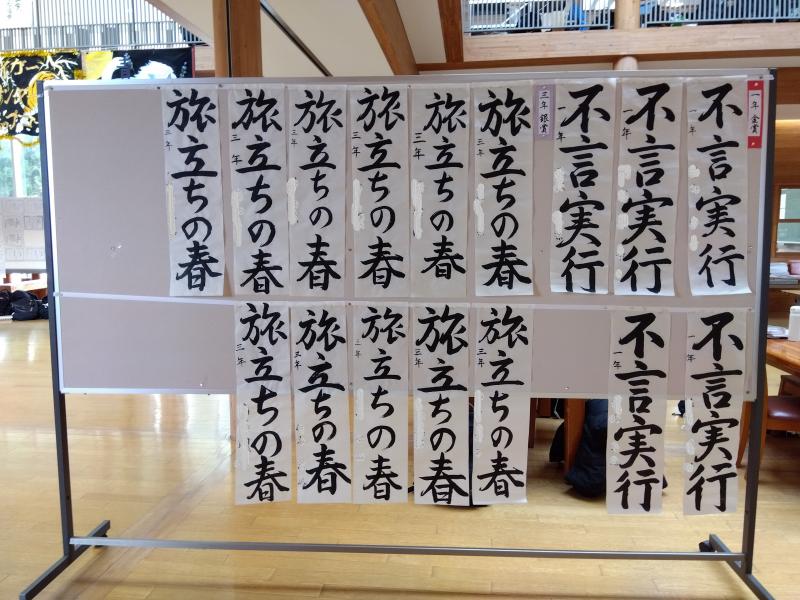 一年 金賞
不言実行
一年
不言実行
一年
不言実行
一年
三年 銀賞
旅立ちの春
三年
旅立ちの春
三年
旅立ちの春
三年
旅立ちの春
三年
旅立ちの春
三年
旅立ちの春
三年
不言実行
一年
不言実行
一年
旅立ちの春
三年
旅立ちの春
三年
旅立ちの春
三年
旅立ちの春
三年
旅立ちの春
三年